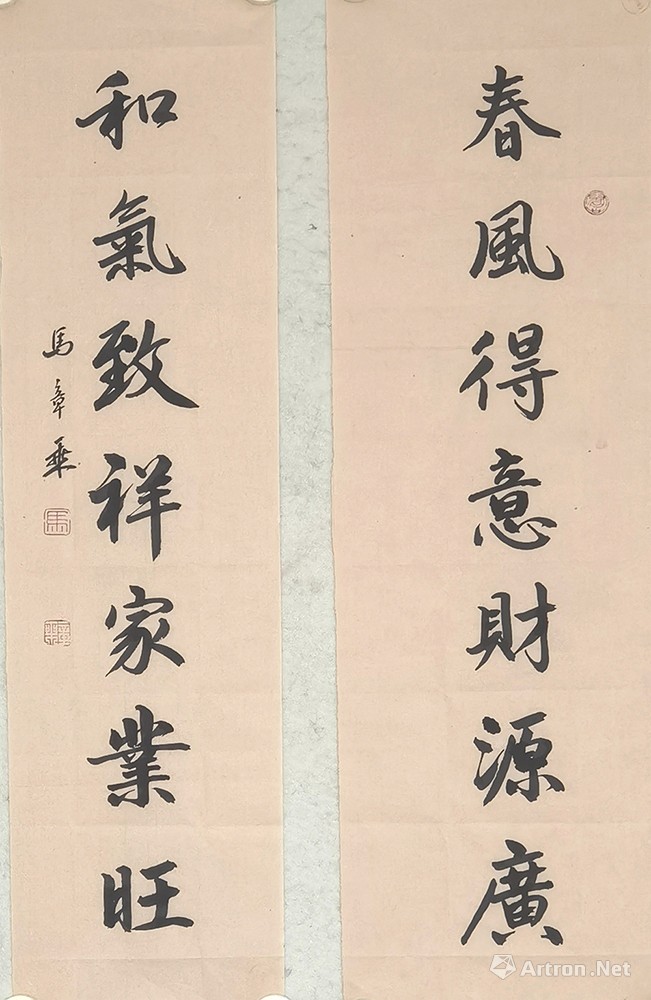 春風得意財源廣
和氣致祥家業旺
馬章乘
馬
Artron.Net